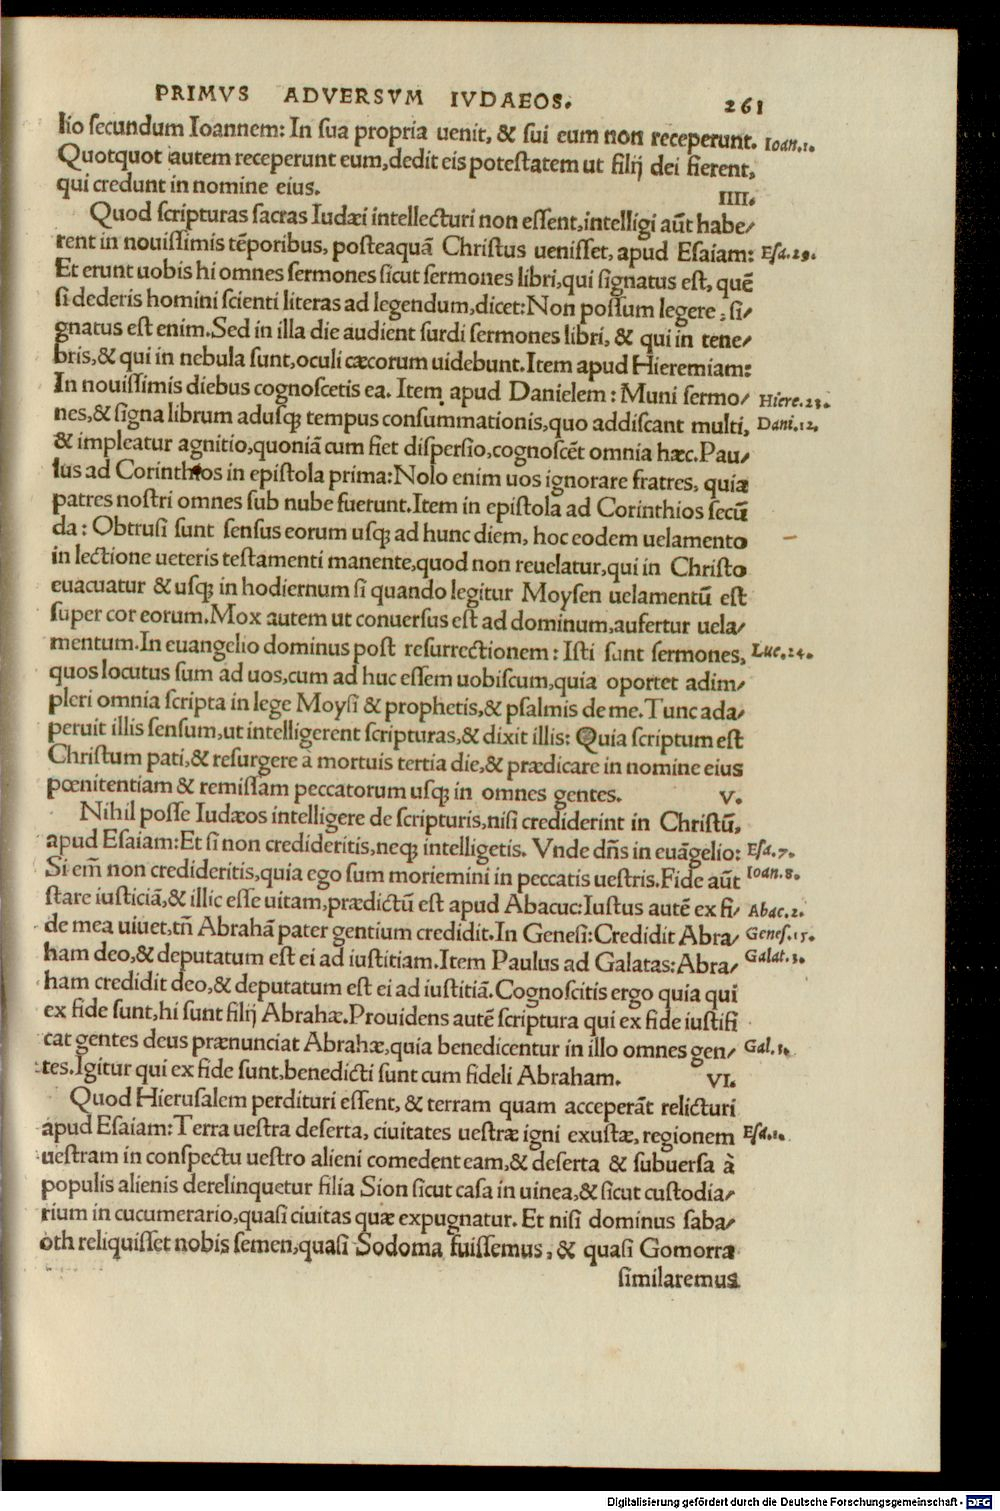 PRIMVS ADVERSVM IVDAEOS. 261
lio ſecundum Ioannem: In ſua propria uenit, & ſui eum non receperunt. Ioan.1.
Quotquot autem receperunt eum,dedit eis poteſtatem ut filij dei fierent,
qui credunt in nomine eius. IIII.
Quod ſcripturas ſacras Iudæi intellecturi non eſſent,intelligi aũt habe/
rent in nouiſſimis tẽporibus, poſteaquã Chriſtus ueniſſet, apud Eſaiam: Eſa.29.
Et erunt uobis hi omnes ſermones ſicut ſermones libri,qui ſignatus eſt, quẽ
ſi dederis homini ſcienti literas ad legendum,dicet:Non poſſum legere, ſi/
gnatus eſt enim.Sed in illa die audient ſurdi ſermones libri, & qui in tene/
bris,& qui in nebula ſunt,oculi cæcorum uidebunt.Item apud Hieremiam:
In nouiſſimis diebus cognoſcetis ea. Item apud Danielem: Muni ſermo/ Hiere.23.
nes,& ſigna librum aduſq; tempus conſummationis,quo addiſcant multi, Dani.12.
& impleatur agnitio,quoniã cum fiet diſperſio,cognoſcẽt omnia hæc.Pau/
lus ad Corinthios in epiſtola prima:Nolo enim uos ignorare fratres, quia
patres noſtri omnes ſub nube fuerunt.Item in epiſtola ad Corinthios ſecũ
da: Obtruſi ſunt ſenſus eorum uſq; ad hunc diem, hoc eodem uelamento
in lectione ueteris teſtamenti manente,quod non reuelatur,qui in Chriſto
euacuatur & uſq; in hodiernum ſi quando legitur Moyſen uelamentũ eſt
ſuper cor eorum.Mox autem ut conuerſus eſt ad dominum,aufertur uela/
mentum.In euangelio dominus poſt reſurrectionem: Iſti ſunt ſermones, Luc.24.
quos locutus ſum ad uos,cum ad huc eſſem uobiſcum,quia oportet adim/
pleri omnia ſcripta in lege Moyſi & prophetis,& pſalmis de me.Tunc ada/
peruit illis ſenſum,ut intelligerent ſcripturas,& dixit illis: Quia ſcriptum eſt
Chriſtum pati,& reſurgere a mortuis tertia die,& prædicare in nomine eius
pœnitentiam & remiſſam peccatorum uſq; in omnes gentes. V.
Nihil poſſe Iudæos intelligere de ſcripturis,niſi crediderint in Chriſtũ,
apud Eſaiam:Et ſi non credideritis,neq; intelligetis. Vnde dñs in euãgelio: Eſa.7.
Si em̃ non credideritis,quia ego ſum moriemini in peccatis ueſtris.Fide aũt Ioan.8.
ſtare iuſticiã,& illic eſſe uitam,prædictũ eſt apud Abacuc:Iuſtus autẽ ex fi/ Abac.2.
de mea uiuet,tñ Abrahã pater gentium credidit.In Geneſi:Credidit Abra/ Geneſ.15.
ham deo,& deputatum eſt ei ad iuſtitiam.Item Paulus ad Galatas:Abra/ Galat.3.
ham credidit deo,& deputatum eſt ei ad iuſtitiã.Cognoſcitis ergo quia qui
ex fide ſunt,hi ſunt filij Abrahæ.Prouidens autẽ ſcriptura qui ex fide iuſtifi
cat gentes deus prænunciat Abrahæ,quia benedicentur in illo omnes gen/ Gal.3.
tes.Igitur qui ex fide ſunt,benedicti ſunt cum fideli Abraham. VI.
Quod Hieruſalem perdituri eſſent, & terram quam acceperãt relicturi
apud Eſaiam:Terra ueſtra deſerta, ciuitates ueſtræ igni exuſtæ, regionem Eſa.1.
ueſtram in conſpectu ueſtro alieni comedent eam,& deſerta & ſubuerſa à
populis alienis derelinquetur filia Sion ſicut caſa in uinea,& ſicut cuſtodia/
rium in cucumerario,quaſi ciuitas quæ expugnatur. Et niſi dominus ſaba/
oth reliquiſſet nobis ſemen,quaſi Sodoma fuiſſemus, & quaſi Gomorra
ſimilaremus
Digitalisierung gefördert durch die Deutsche Forschungsgemeinschaft - DFG